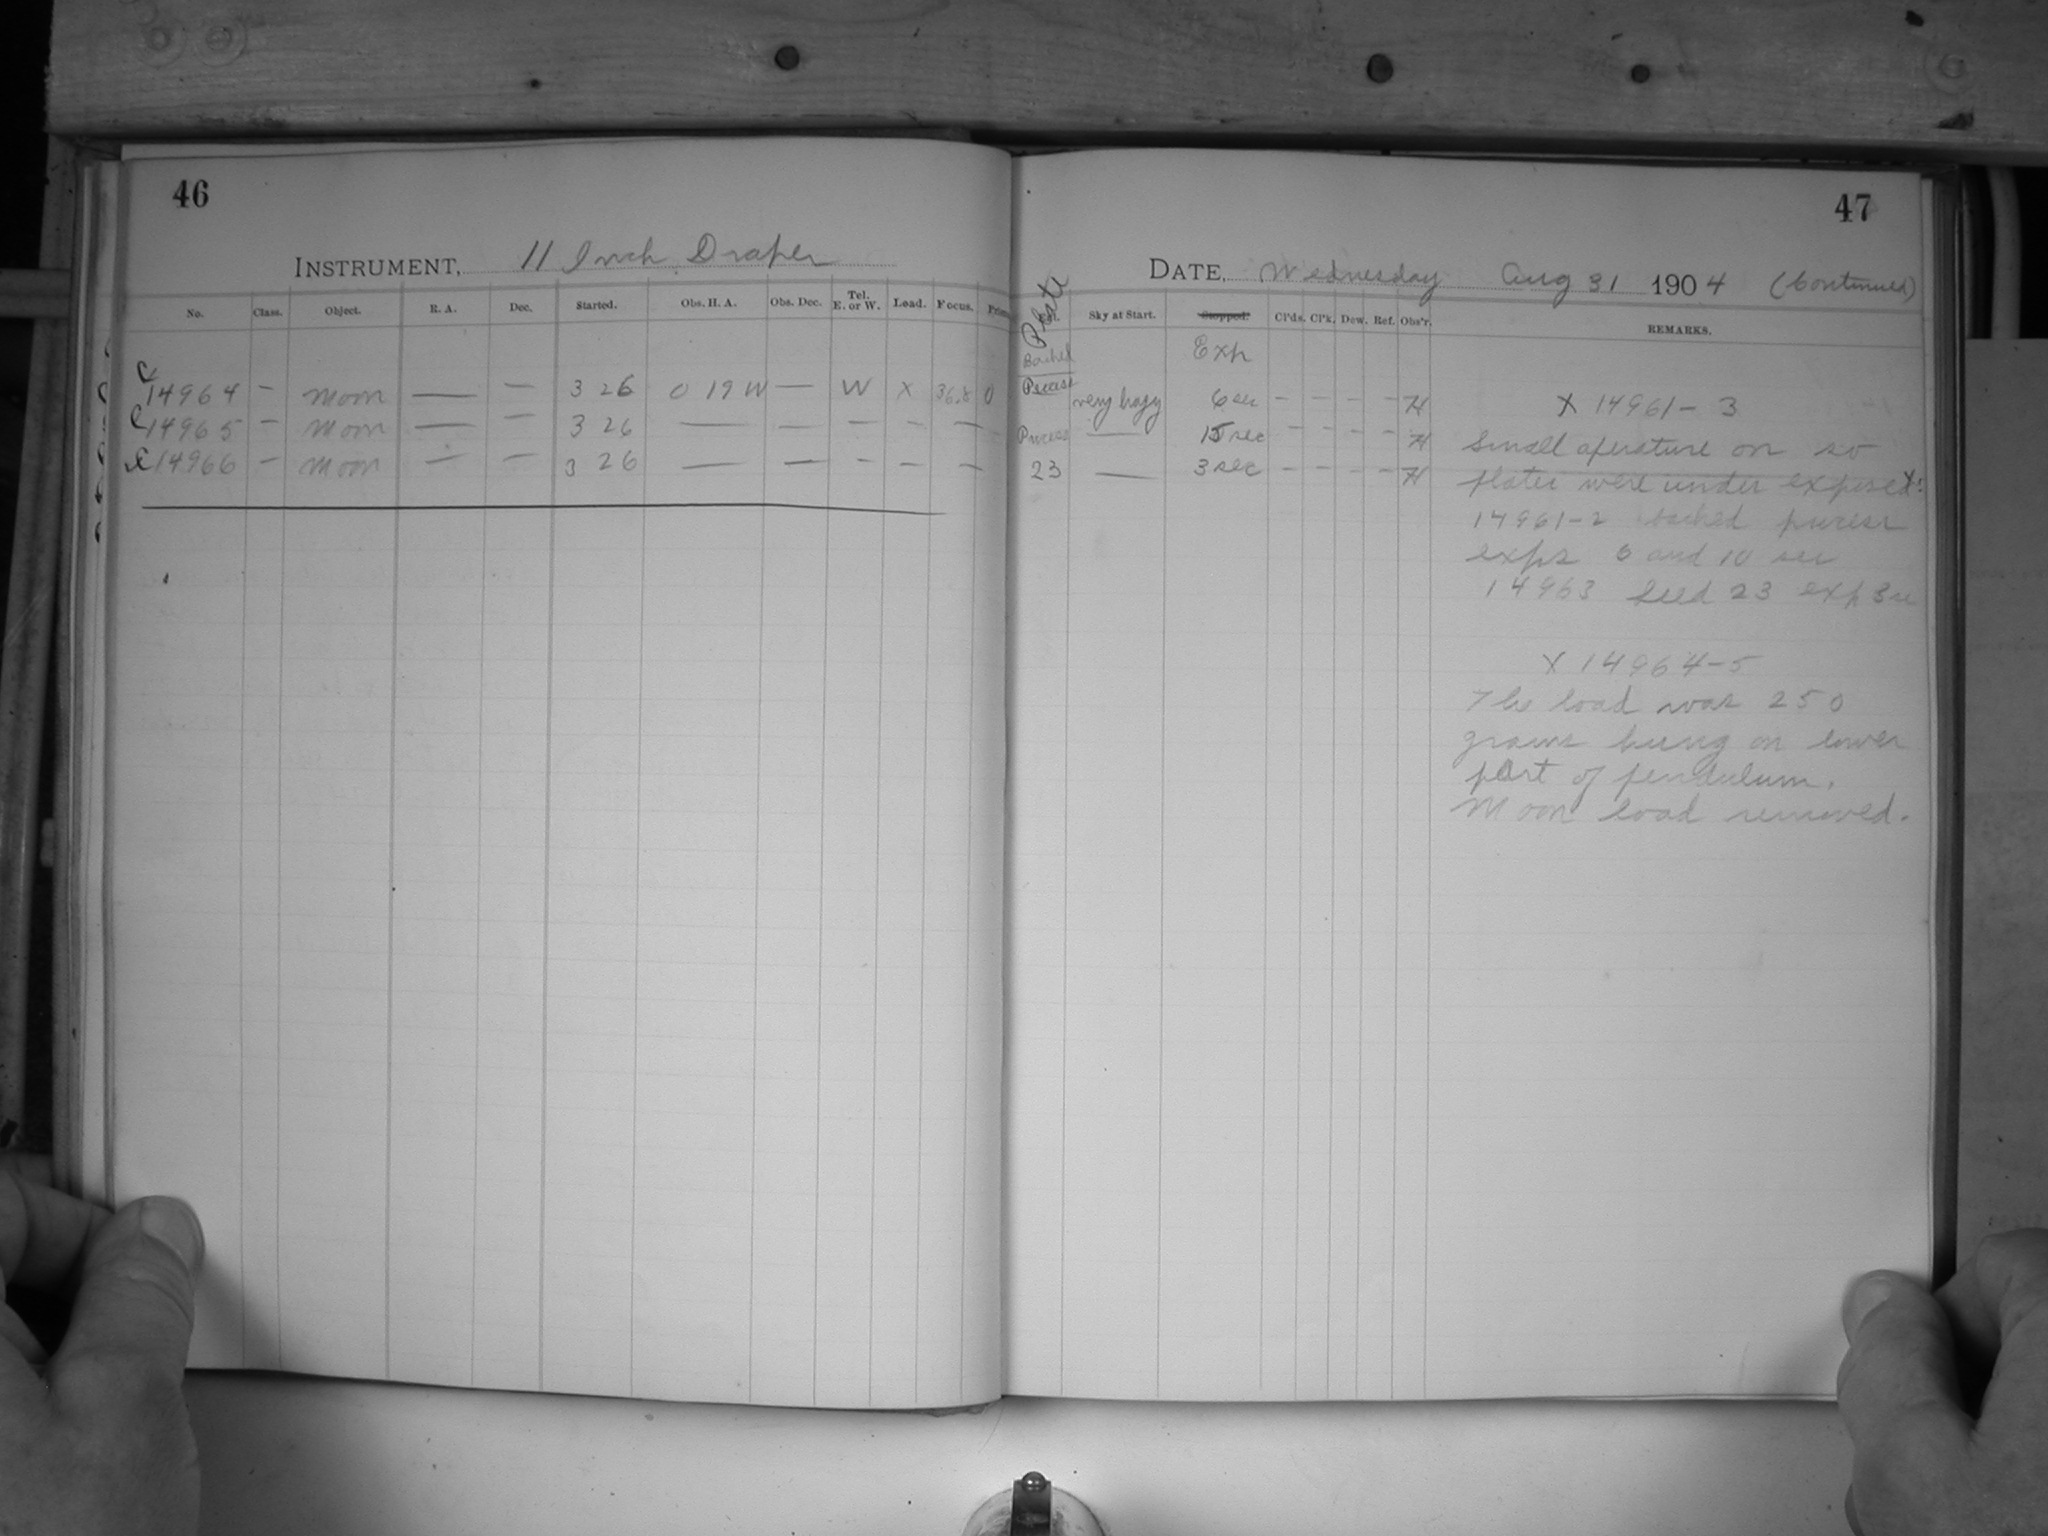 46
INSTRUMENT, 11 Inch Draper
No. Class. Object. R. A. Dec. Started. Obs. H. A. Obs. Dec. Tel. E. or W. Load. Focus.
C 14964 — Moon — — 3 26 0 19 W — W X 36.8 0
C 14965 — Moon — — 3 26 — — — — — —
C 14966 — Moon — — 3 26 — — — — — —
47
DATE, Wednesday Aug 31 1904 (Continued)
Plate
Sky at Start. Stopped. Cl'ds. Cl'k. Dew. Ref. Obs'r. REMARKS.
Backed Exp
Process very hazy 6 sec - - - - H
Process — 15 sec - - - - H
23 — 3 sec - - - - H
X 14961-3
Small aperature on so
plates were under exposed.
14961-2 backed process
exps 6 and 10 sec
14963 Seed 23 exp 3 se
X 14964-5
The load was 250
grams hung on lower
part of pendulum.
Moon load removed.